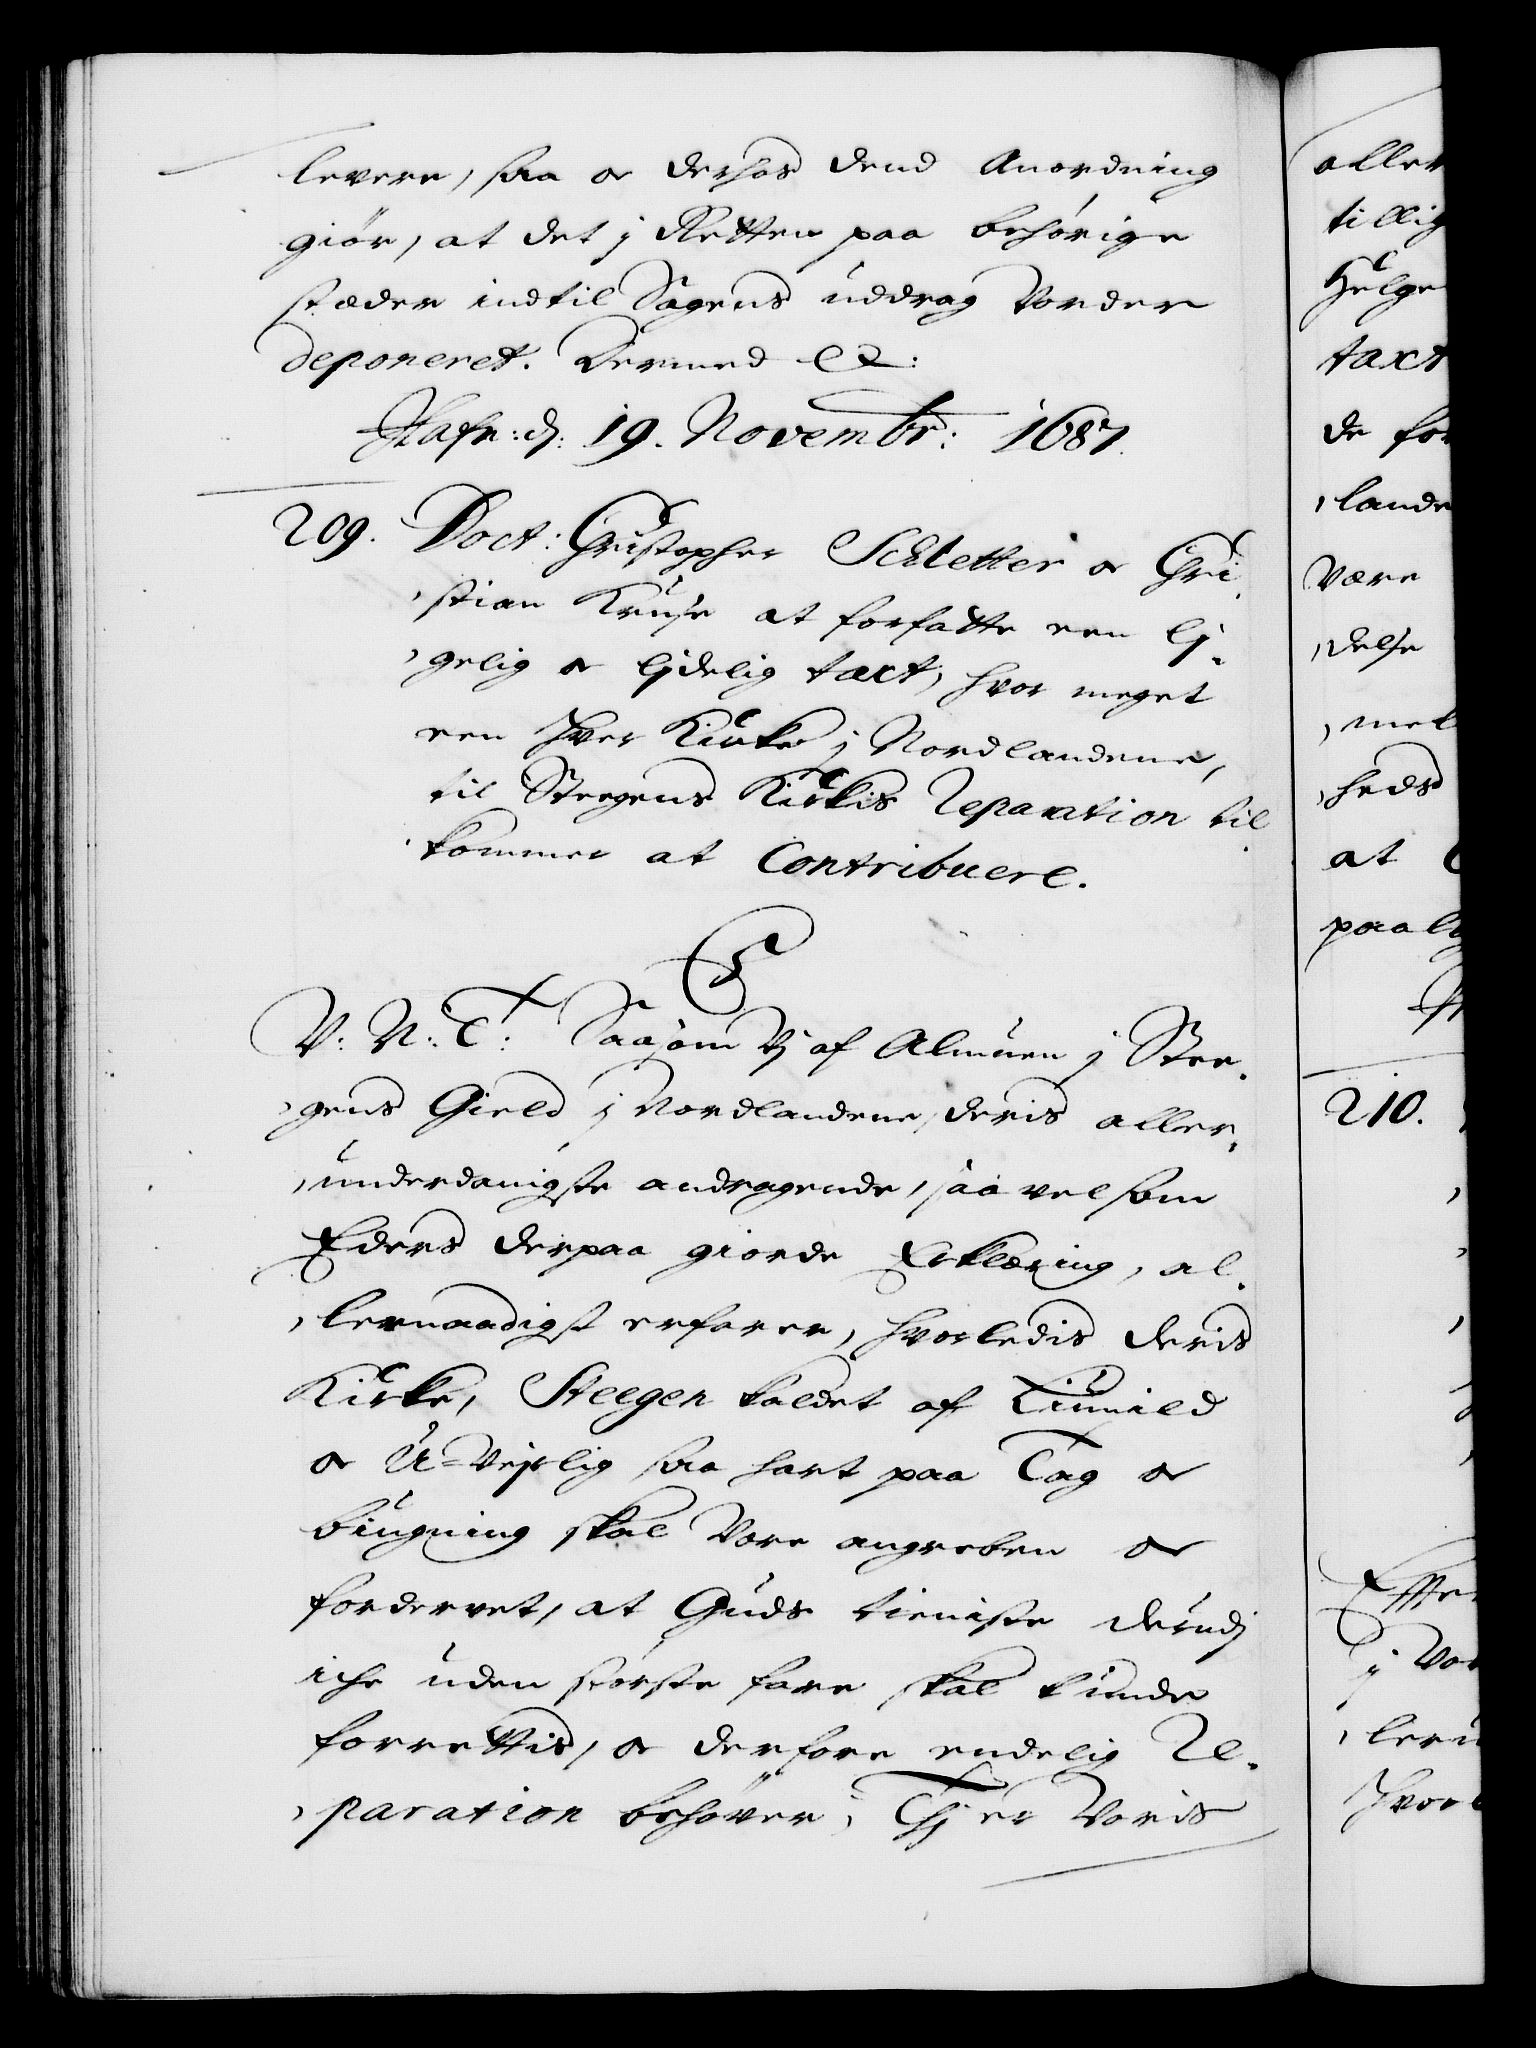 levere, saa oc derhos dend Anordning
giör, at det j Retten paa behörige
stæder indtil Sagens uddrag Vorder
deponeret. Dermed etc:
Hafn: d: 19. Novembr: 1687.
209. Doct: Christopher Schletter oc Chri-
stian Kruse at forfatte een lj-
gelig oc ljdelig taxt, hvor meget
een hver Kirke j Nordlandene,
til Steegens Kirkis Reparation til
kommer at Contribuere.
C5
V: N: T: Saasom Vj af Almuen j Stee-
gens Gield j Nordlandene, deris aller-
underdanigste andragende, saa vel som
Eders derpaa giorde Erklæring, al-
lernaadigst erfarer, hvorledis deris
Kirke, Steegen kaldet af
oc U-Vejrlig saa hart paa Tag oc
bŭgning skal Vere angreben oc
fordervet, at Guds tieniste derudj
iche uden störste fare skal kunde
forrettis, oc derfore endelig Re-
paration behöver, Thj er Voris
aller
tillig
Helge
taxt
de for
lande
Være
delse
met
heds
at
paaly
210.
Effter
j Vor
lern
hvorl